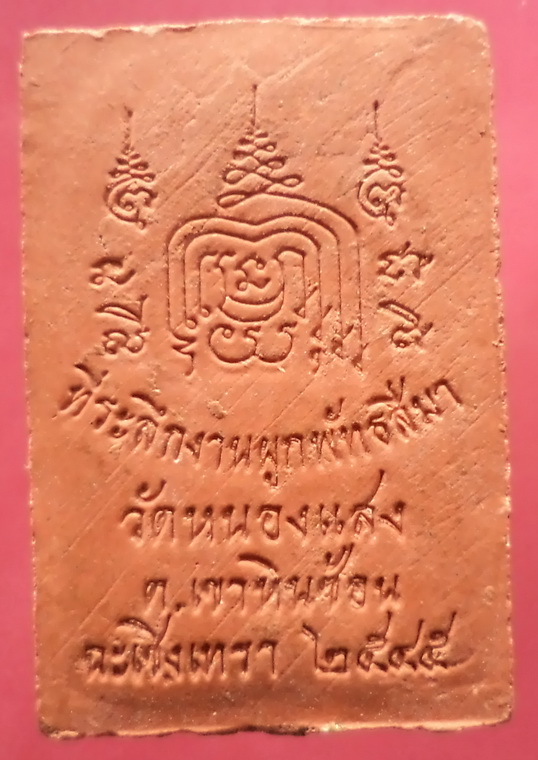 ที่ระลึกงานผูกพัทธสีมา
วัดหนองแสง
ต.เขาหินซ้อน
ฉะเชิงเทรา ๒๕๔๕